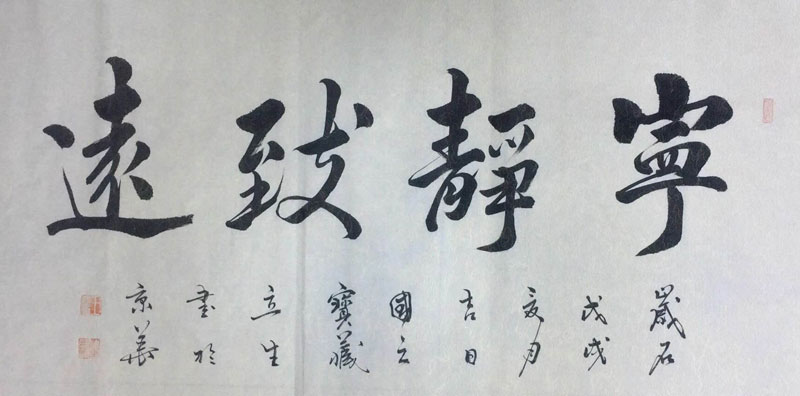 寧靜致遠
歲在
戊戌
夏月
吉日
國
寶藏
立生
書於
京華